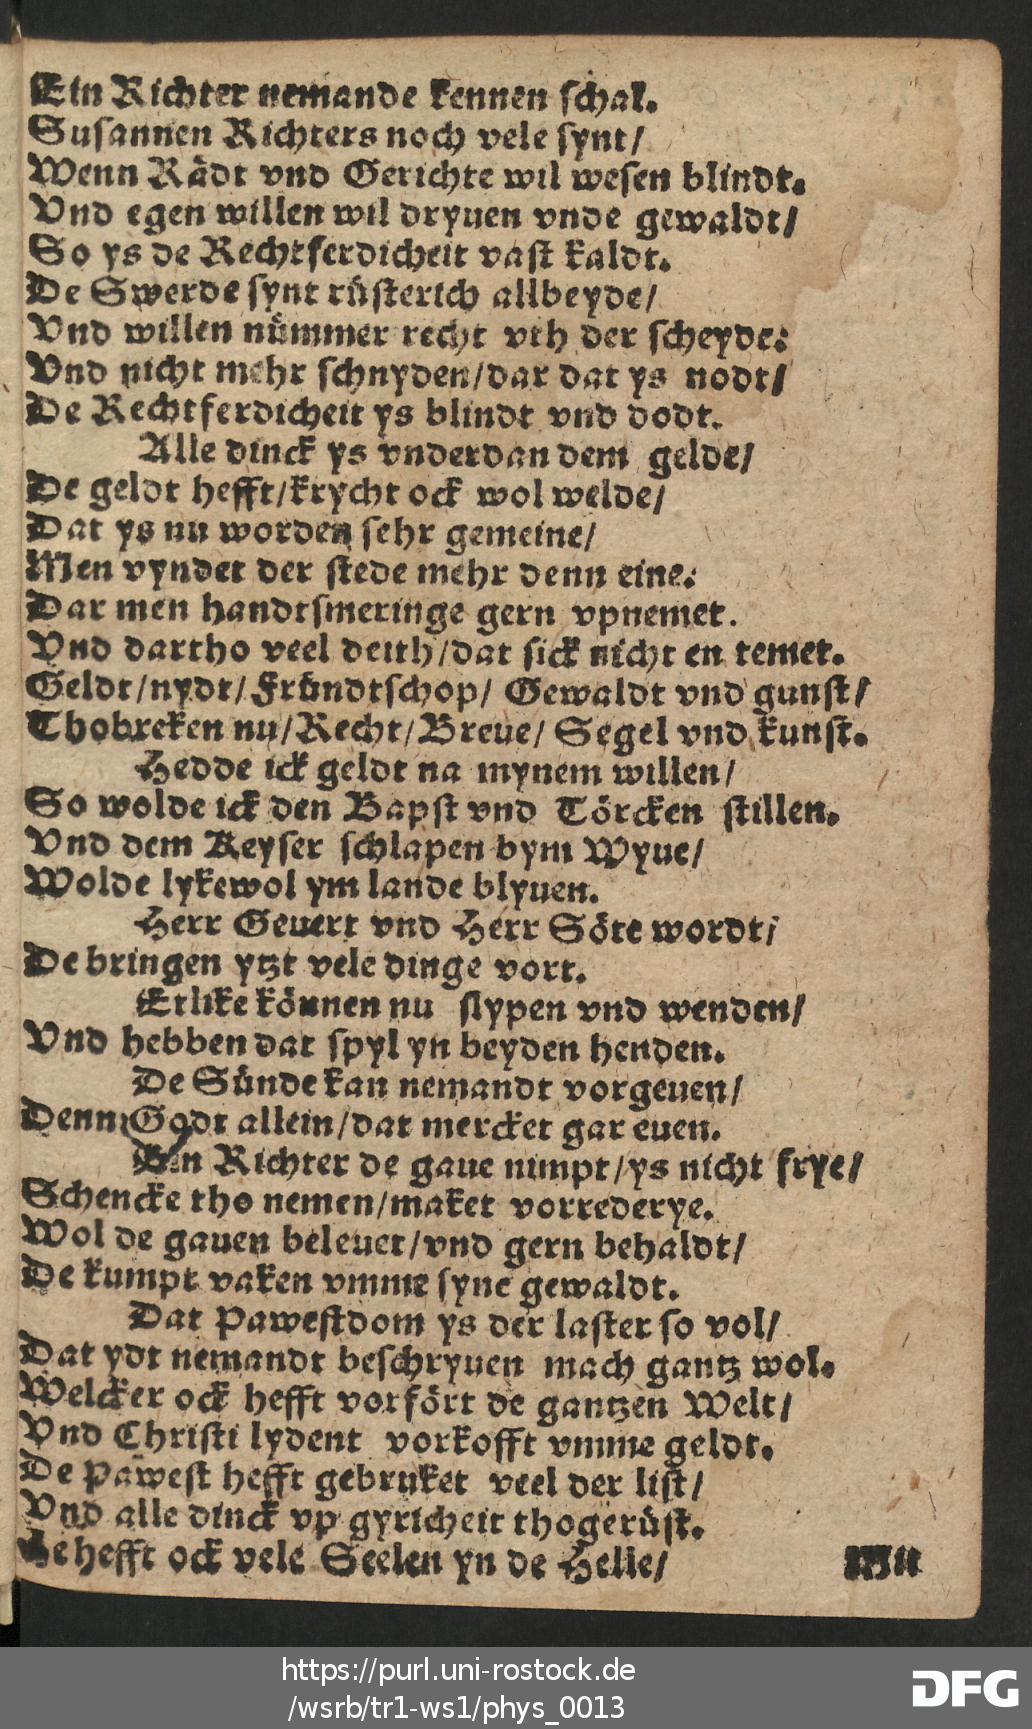 Ein Richter nemande kennen schal.
Susannen Richters noch vele synt/
Wenn Rädt vnd Gerichte wil wesen blindt.
Vnd egen willen wil dryuen vnde gewaldt/
So ys de Rechtferdicheit vast kaldt.
De Swerde synt rüsterich allbeyde/
Vnd willen nümmer recht vth der scheyde:
Vnd nicht mehr schnyden/dar dat ys nodt/
De Rechtferdicheit ys blindt vnd dodt.
Alle dinck ys vnderdan dem gelde/
De geldt hefft/krycht ock wol welde/
Dat ys nu worden sehr gemeine/
Men vyndet der stede mehr denn eine:
Dar men handtsmeringe gern vpnemet.
Vnd dartho veel deith/dat sick nicht en temet.
Geldt/nydt/Fründtschop/ Gewaldt vnd gunst/
Thobreken nu/Recht/Breue/ Segel vnd kunst.
Hedde ick geldt na mynem willen/
So wolde ick den Bapst vnd Törcken stillen.
Vnd dem Keyser schlapen bym Wyue/
Wolde lykewol ym lande blyuen.
Herr Geuert vnd Herr Söte wordt/
De bringen ytzt vele dinge vort.
Etlike können nu slypen vnd wenden/
Vnd hebben dat spyl yn beyden henden.
De Sünde kan nemandt vorgeuen/
Denn Godt allein/dat mercket gar euen.
Ein Richter de gaue nimpt/ys nicht frye/
Schencke tho nemen/maket vorrederye.
Wol de gauen beleuet/vnd gern behaldt/
De kumpt vaken vmme syne gewaldt.
Dat Pawestdom ys der laster so vol/
Dat ydt nemandt beschryuen mach gantz wol.
Welcker ock hefft vorfört de gantzen Welt/
Vnd Christi lydent vorkofft vmme geldt.
De Pawest hefft gebruket veel der list/
Vnd alle dinck vp gyricheit thogerüst.
He hefft ock vele Seelen yn de Helle/
Mit
https://purl.uni-rostock.de
/wsrb/tr1-ws1/phys_0013
DFG